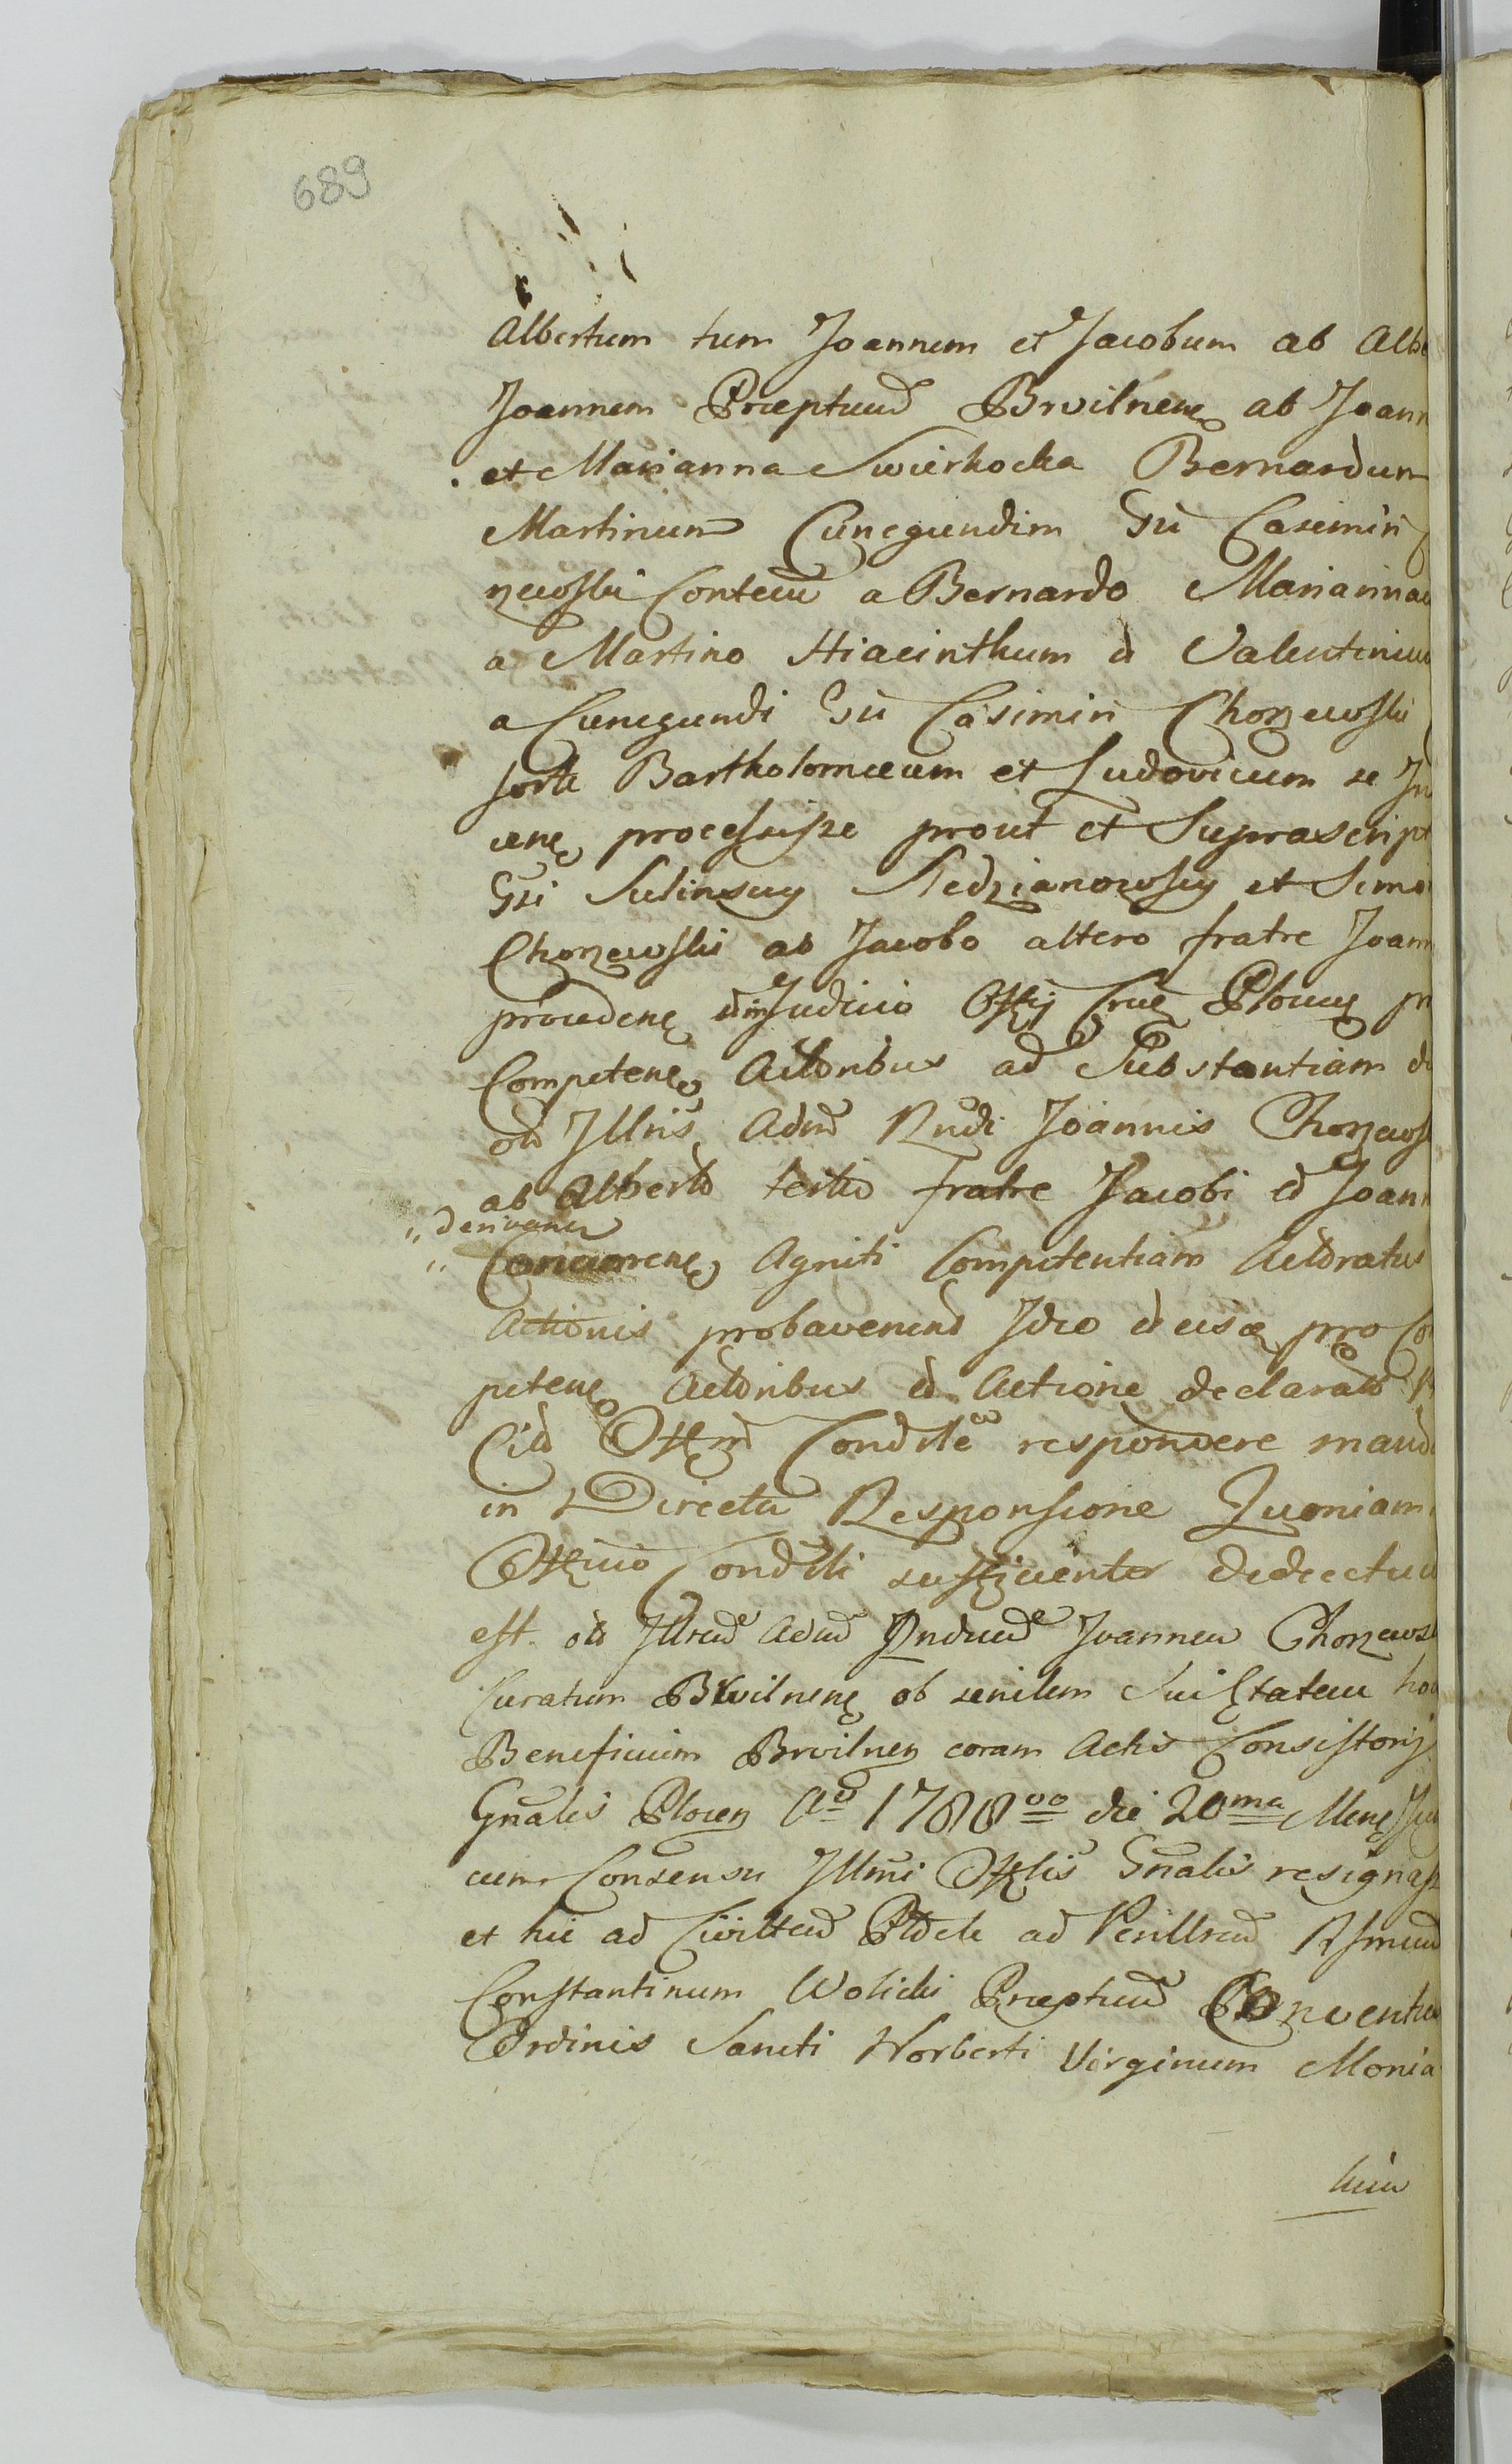 689
Albertum tum Joannem et Jacobum ab Alb
Joannem Præptum Brwilnens ab Joann
et Marianna Swierkocka Bernardum
Martinum Cunegundim Gsi Casimiri
zewski Contem a Bernardo Mariannam
a Martino Hiacinthum et Valentinum
a Cunegundi Gsi Casimiri Chorzewski
sorte Bartholomæum et Ludovicum se
cene processisse prout et Suprascript
Gsi Sulinscy Kedzianowscy et Simo
Chorzewski ab Jacobo altero fratre Joann
procedene Judicio Offij Plocen
Competene Actoribus ad Substantiam
olim Illris Admd Rndi Joannis Chorzews
ab Alberto tertio fratre Jacobi et Joann
derivanen
Agniti Competentiam Actoratus
Actionis probaverunt Ideo eisq pro Co
petene Actoribus et Actione declarato
Cit Offm Condile respondere mand
in Directa Responsione Quoniam
Officio Condili sufficienter deductum
est. olim Illrem Admd Rndum Joannem Chorzews
Curatum Brwilnene ob senilem sui Etatem hoc
Beneficium Brwilnen coram Actis Consistorij
Gnalis Plocen Ao 1788vo die 20ma Mens
cum Consensu Illmi Offlis Gnalis resignass
et hic ad Civiltem ad Perillrem Rsmum
Constantinum Wolicki Præptum Conventus
Ordinis Sancti Norberti Virginum Monia
lium